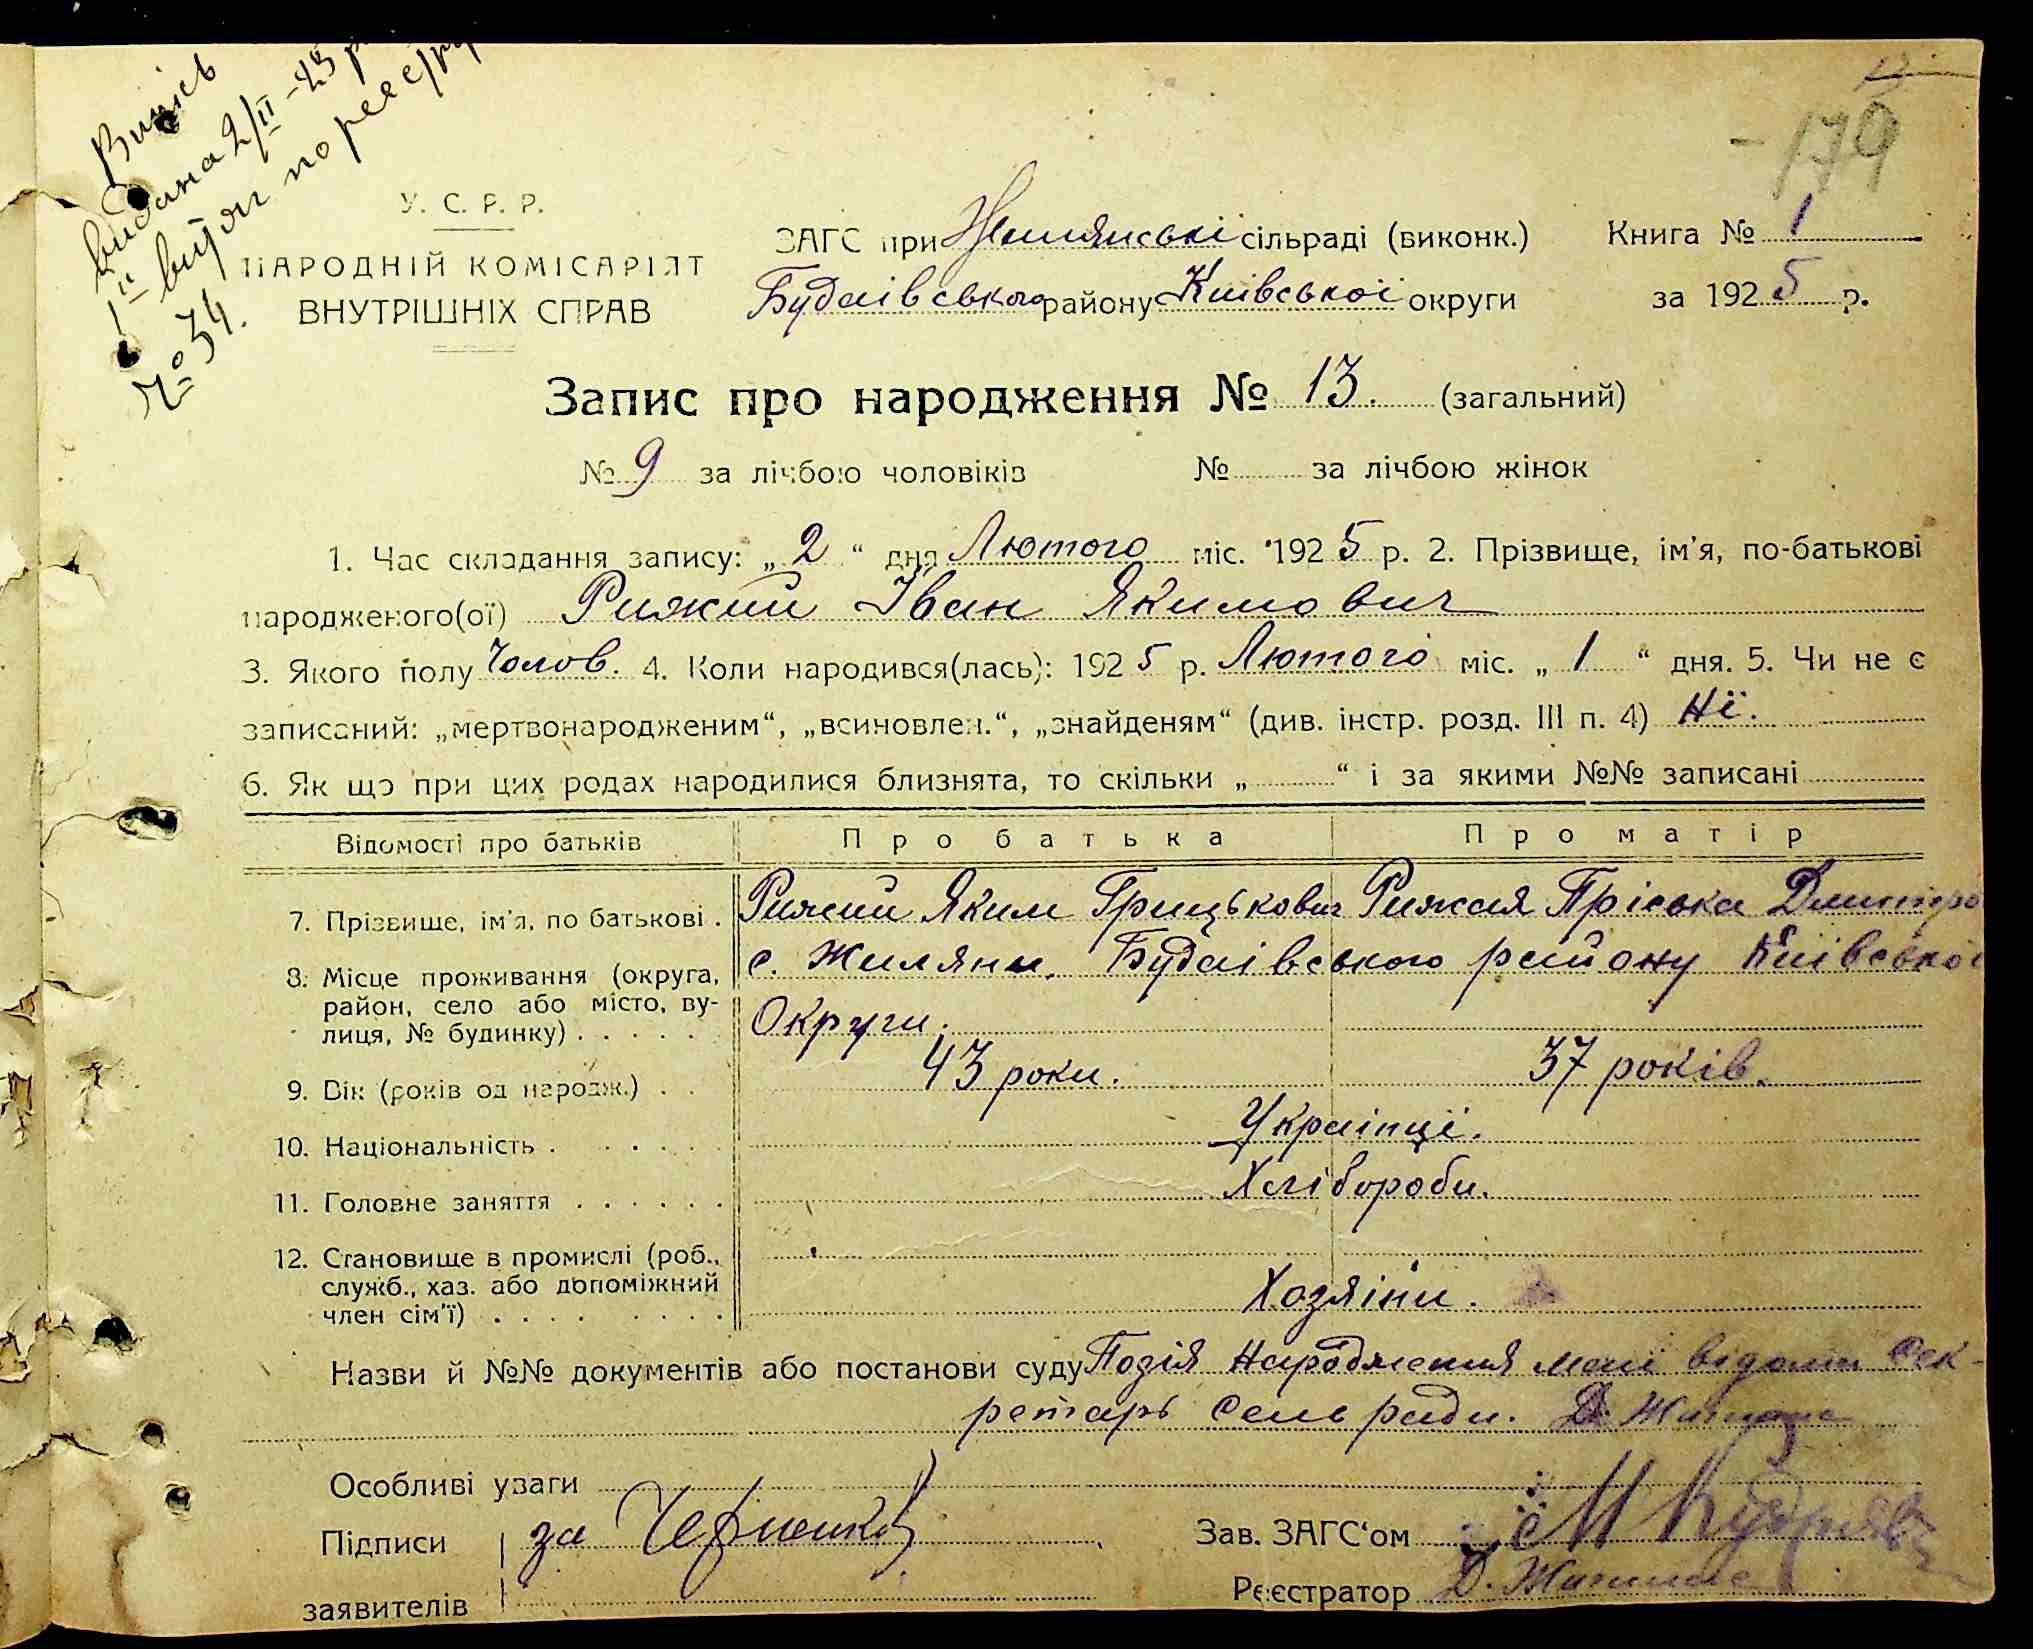 Випись
видана 2/II-25 р
по реєстру
№ 34.
- 179
У. С. Р. Р.
НАРОДНІЙ КОМІСАРІЯТ
ВНУТРІШНІХ СПРАВ
ЗАГС при Жилянській сільраді (виконк.) Книга № 1
Будаівського району Київської округи за 1925 р.
Запис про народження № 13. (загальний)
№ 9 за лічбою чоловіків № за лічбою жінок
1. Час складання запису: „2“ дня Лютого міс. 1925 р. 2. Прізвище, ім'я, по-батькові
народженого(ої) Рижий Іван Якимович
3. Якого полу Чолов. 4. Коли народився(лась): 1925 р. Лютого міс. „1“ дня. 5. Чи не є
записаний: „мертвонародженим“, „всиновлен.“, „знайденям“ (див. інстр. розд. III п. 4) Ні.
6. Як що при цих родах народилися близнята, то скільки „ “ і за якими №№ записані
Відомості про батьків Про батька Про матір
7. Прізвище, ім'я, по батькові . Рижий Яким Грицькович Рижая Пріська Дмитро
8. Місце проживання (округа, с. Жиляни. Будаівського району Київської
район, село або місто, ву-
лиця, № будинку) . . . . . Округи.
9. Вік (років од народж.) . . 43 роки. 37 років.
10. Національність . . . . . . Українці.
11. Головне заняття . . . . . . Хлібороби.
12. Становище в промислі (роб.,
служб., хаз. або допоміжний
член сім'ї) . . . . . . . . Хозяіни.
Назви й №№ документів або постанови суду Подія Народження мені відома Сек-
ретарь Сельради. Д.
Особливі уваги
Підписи за Зав. ЗАГС'ом
заявителів Реєстратор Д.